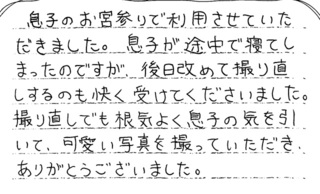 息子のお宮参りで利用させていた
だきました。息子が途中で寝てし
まったのですが、後日改めて撮り直
しするのも快く受けてくださいました。
撮り直しでも根気よく息子の気を引
いて、可愛い写真を撮っていただき、
ありがとうございました。